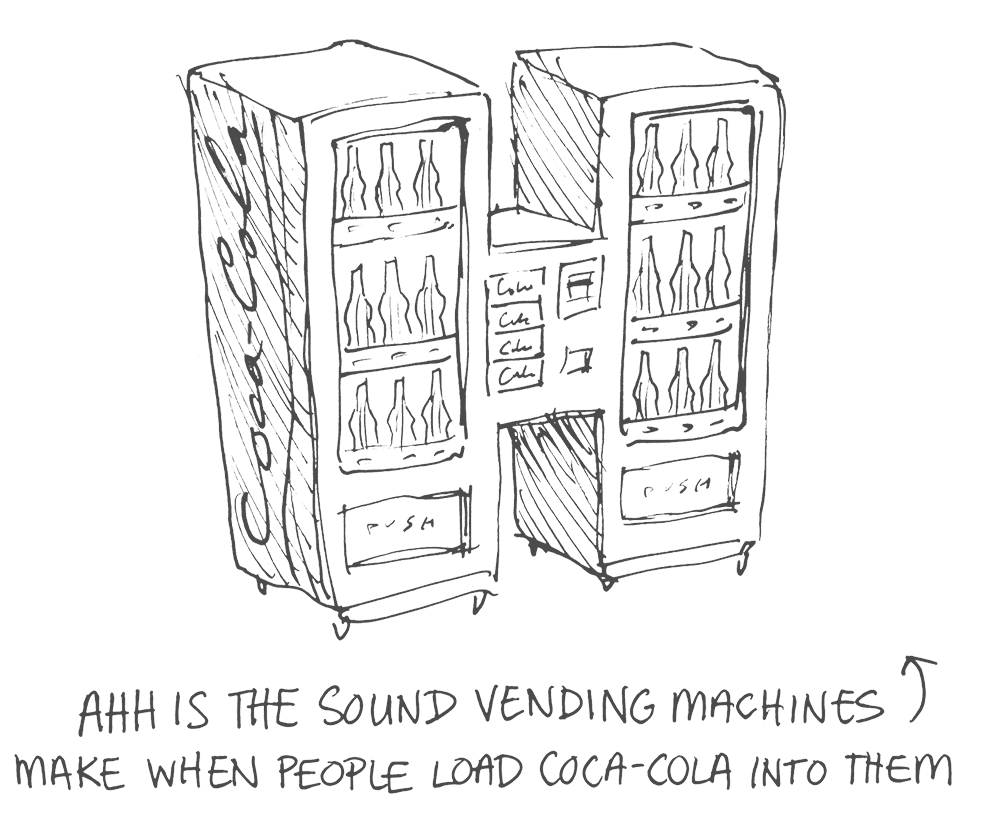 Coca-Cola
Coke
Coke
Coke
Coke
PUSH
PUSH
AHH IS THE SOUND VENDING MACHINES
MAKE WHEN PEOPLE LOAD COCA-COLA INTO THEM